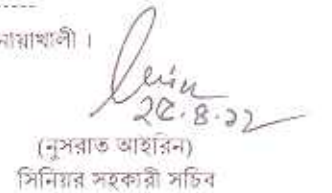 নোয়াখালী ।
২৫.৪.১২
(নুসরাত আইরিন)
সিনিয়র সহকারী সচিব